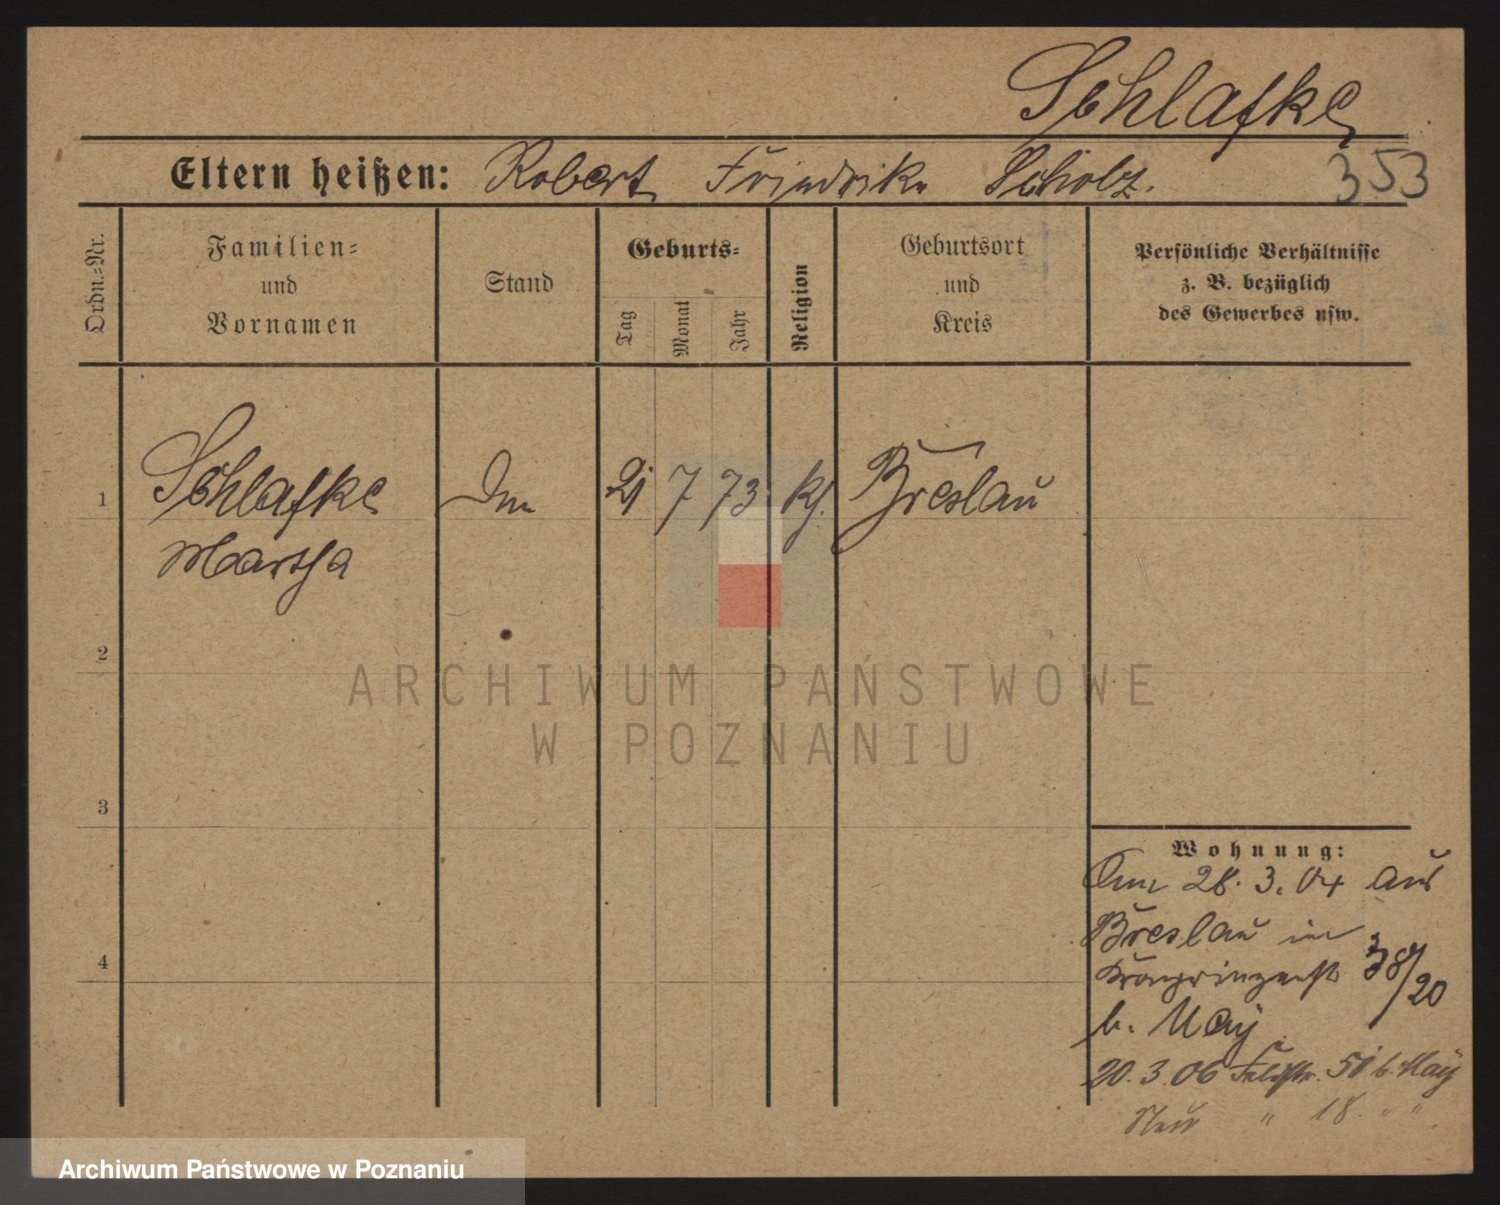 Schlafke
Eltern heißen: Robert Friedrike Scholz.
353
Ordn.=Nr.
Familien=
und
Vornamen
Stand
Geburts=
Tag
Monat
Jahr
Religion
Geburtsort
und
Kreis
Persönliche Verhältnisse
z. B. bezüglich
des Gewerbes usw.
1 Schlafke 7 73 Breslau
Martha
2
ARCHIWUM PAŃSTWOWE
W POZNANIU
3
Wohnung:
Am 28. 3. 04 aus
Breslau in
4
Kronprinzenst 38/20
b. May
20. 3. 06 Feldstr. 51 b. May
Neue " 18. " "
Archiwum Państwowe w Poznaniu